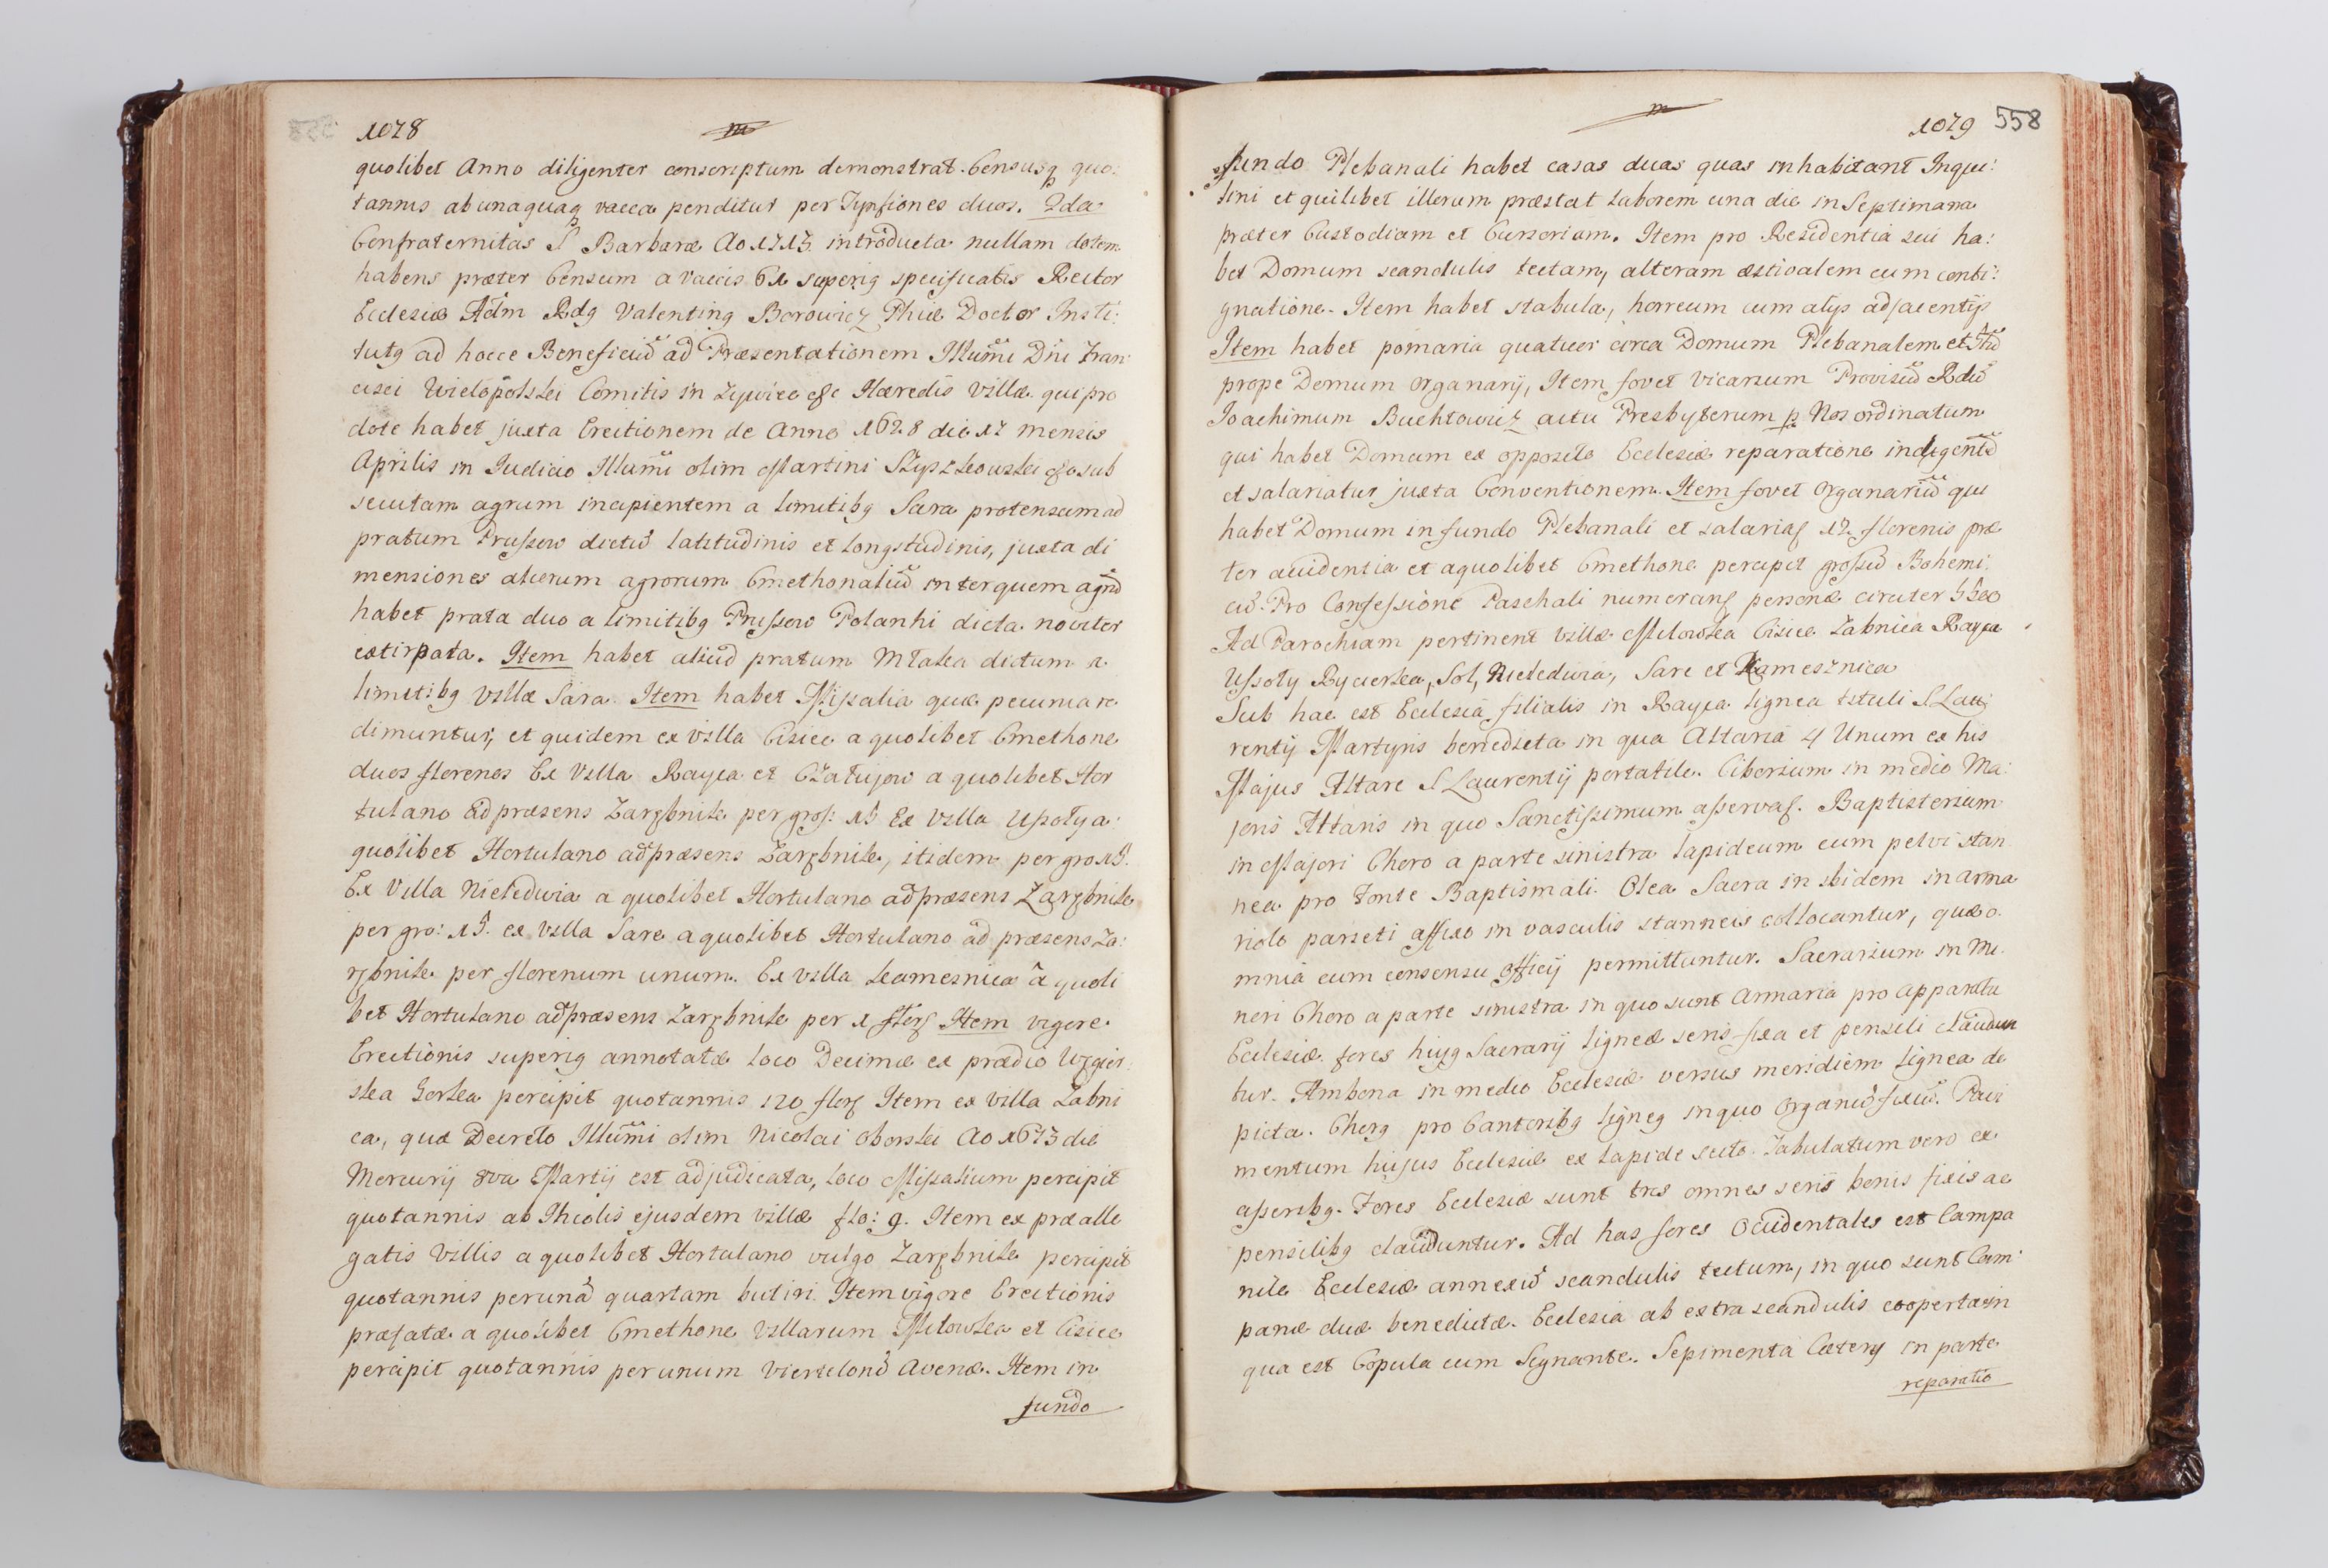 1078
quolibet Anno diligenter conscriptum demonstrat. Censusq quo:
tannis ab unaquaq vacca penditur per Tynfiones duos. 2da
Confraternitas S Barbaræ Ao 1713 introducta nullam dotem
habens præter Censum a vaccis 61 superig specificatis Rector
Ecclesiæ Adm Rdg Valenting Borowicz Phiæ Doctor Insti:
tutg ad hocce Beneficiu ad Præsentationem Illumi Dni Fran
cisci Wielopolskci Comitis in Zywiec &c Hæredis Villæ qui pro
dote habet juxta Erectionem de Anno 1628 die 17 mensis
Aprilis in Judicio Illumi olim Martini Szyszkowski &c sub
secutam agrum incipientem a limitibg Sara protensum ad
pratum Prussow dictu latitudinis et longitudinis, juxta di
mensiones aliorum agrorum Cmethonaliu inter quem agru
habet prata duo a limitibg Prussow Polanki dicta noviter
extirpata. Item habet aliud pratum Młaka dictum a
limitibg Villæ Sara. Item habet Missalia quæ pecunia re
dimuntur, et quidem ex villa Cisiec a quolibet Cmethone
duos florenos Ex Villa Rayca et Czatujow a quolibet Hor
tulano ad præsens Zarębnik per gros: 15 Ex Villa Ussoły a
quolibet Hortulano ad præsens Zarębnik, itidem per gro 15.
Ex Villa Nieledwia a quolibet Hortulano ad præsens Zarębnik
per gro: 15. ex villa Sare a quolibet Hortulano ad præsens Za:
rębnik per florenum unum. Ex villa Kamesnica a quoli
bet Hortulano ad præsens Zarębnik per 1 flor Item vigore
Erectionis superig annotatæ loco Decimæ ex prædio Węgier:
ska Gorka percipit quotannis 120 flor Item ex villa Zabni
ca, quæ Decreto Illumi olim Nicolai Oborski Ao 1673 die
Mercurij 8va Martij est adjudicata, loco Missalium percipit
quotannis ab Incolis ejusdem villæ flo: 9. Item ex præalle
gatis Villis a quolibet Hortulano vulgo Zarębnik percipit
quotannis per una quartam butiri. Item vigore Erectionis
præfatæ a quolibet Cmethone Villarum Milowka et Cisiec
percipit quotannis per unum Viertelonu Avenæ. Item in
fundo
1079 558
fundo Plebanali habet casas duas quas inhabitant Inqui:
lini et quilibet illorum præstat laborem una die in Septimana
præter Custodiam et Cursoriam. Item pro Residentia sui ha:
bet Domum scandulis tectam, alteram æstivalem cum conti:
gnatione. Item habet stabula, horreum cum alijs adjacentijs
Item habet pomaria quatuor circa Domum Plebanalem et 5tu
prope Domum Organarij, Item fovet Vicarium Provisiu Rdu
Joachimum Buchtowicz actu Presbyterum p Nos ordinatum
qui habet Domum ex opposito Ecclesiæ reparatione indigente
et salariatur juxta Conventionem. Item fovet Organariu qui
habet Domum in fundo Plebanali et salariaf 12 florenis præ
ter accidentia et a quolibet Cmethone percipit grossu Bohemi:
cu. Pro Confessione Paschali numeranf personæ circiter 5500
Ad Parochiam pertinent Villæ Milowka Cisiec Zabnica Rayca
Ussoły Rycerka, Sol, Nieledwia, Sare et Kamesznica
Sub hac est Ecclesia filialis in Rayca lignea tituli S Lau
rentij Martyris benedicta in qua Altaria 4 Unum ex his
Majus Altare S Laurentij portatile. Ciborium in medio Ma:
joris Altaris in quo Sanctissimum asservaf. Baptisterium
in Majori Choro a parte sinistra lapideum cum pelvi stan
nea pro Fonte Baptismali. Olea Sacra in ibidem in arma
riolo parieti affixo in vasculis stanneis collocantur, quæ o
mnia cum consensu Officij permittuntur. Sacrarium in Mi:
nori Choro a parte sinistra in quo sunt Armaria pro Apparatu
Ecclesiæ fores hujg Sacrarij ligneæ seris fixa et pensili claudun
tur. Ambona in medio Ecclesiæ versus meridiem lignea de
picta. Chorg pro Cantoribg ligneg in quo Organu fixu. Pavi
mentum hujus Ecclesiæ ex lapide secto. Tabulatum vero ex
asseribg. Fores Ecclesiæ sunt tres omnes seris bonis fixis ac
pensilibg clauduntur. Ad has fores Occidentales est Campa
nile Ecclesiæ annexu scandulis tectum, in quo sunt Cam:
panæ duæ benedictæ. Ecclesia ab extra scandulis cooperta in
qua est Copula cum Signante. Sepimenta Cæterij in parte
reparatio